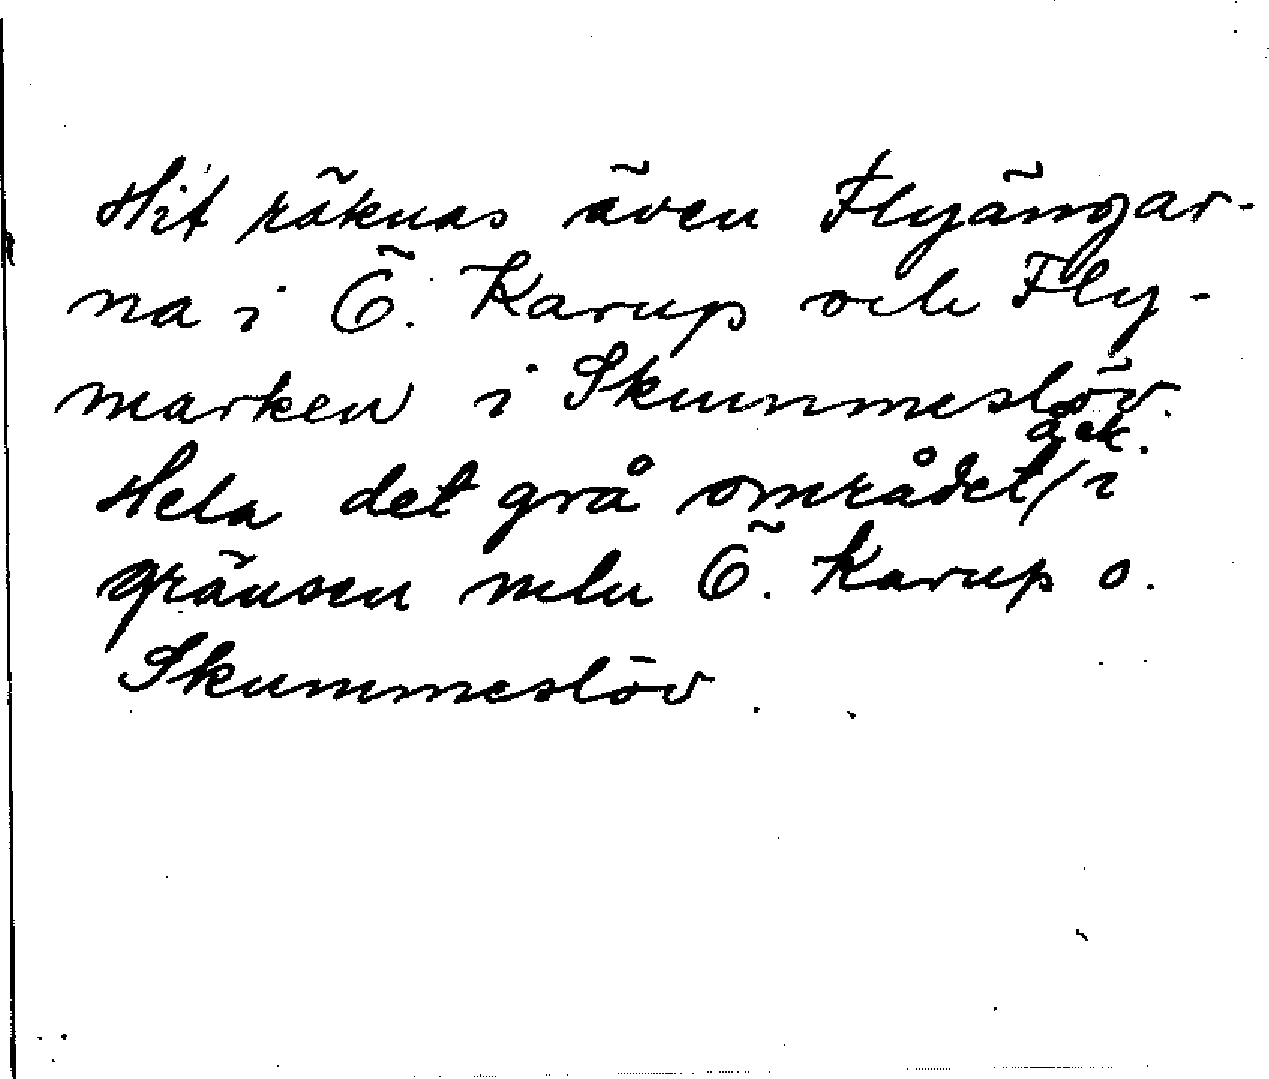 Hit räknas även Flyängar-
na i Ö. Karup och Fly-
marken i Skummeslöv.
Hela det grå området å ek. i
gränsen mln Ö. Karup o.
Skummeslöv